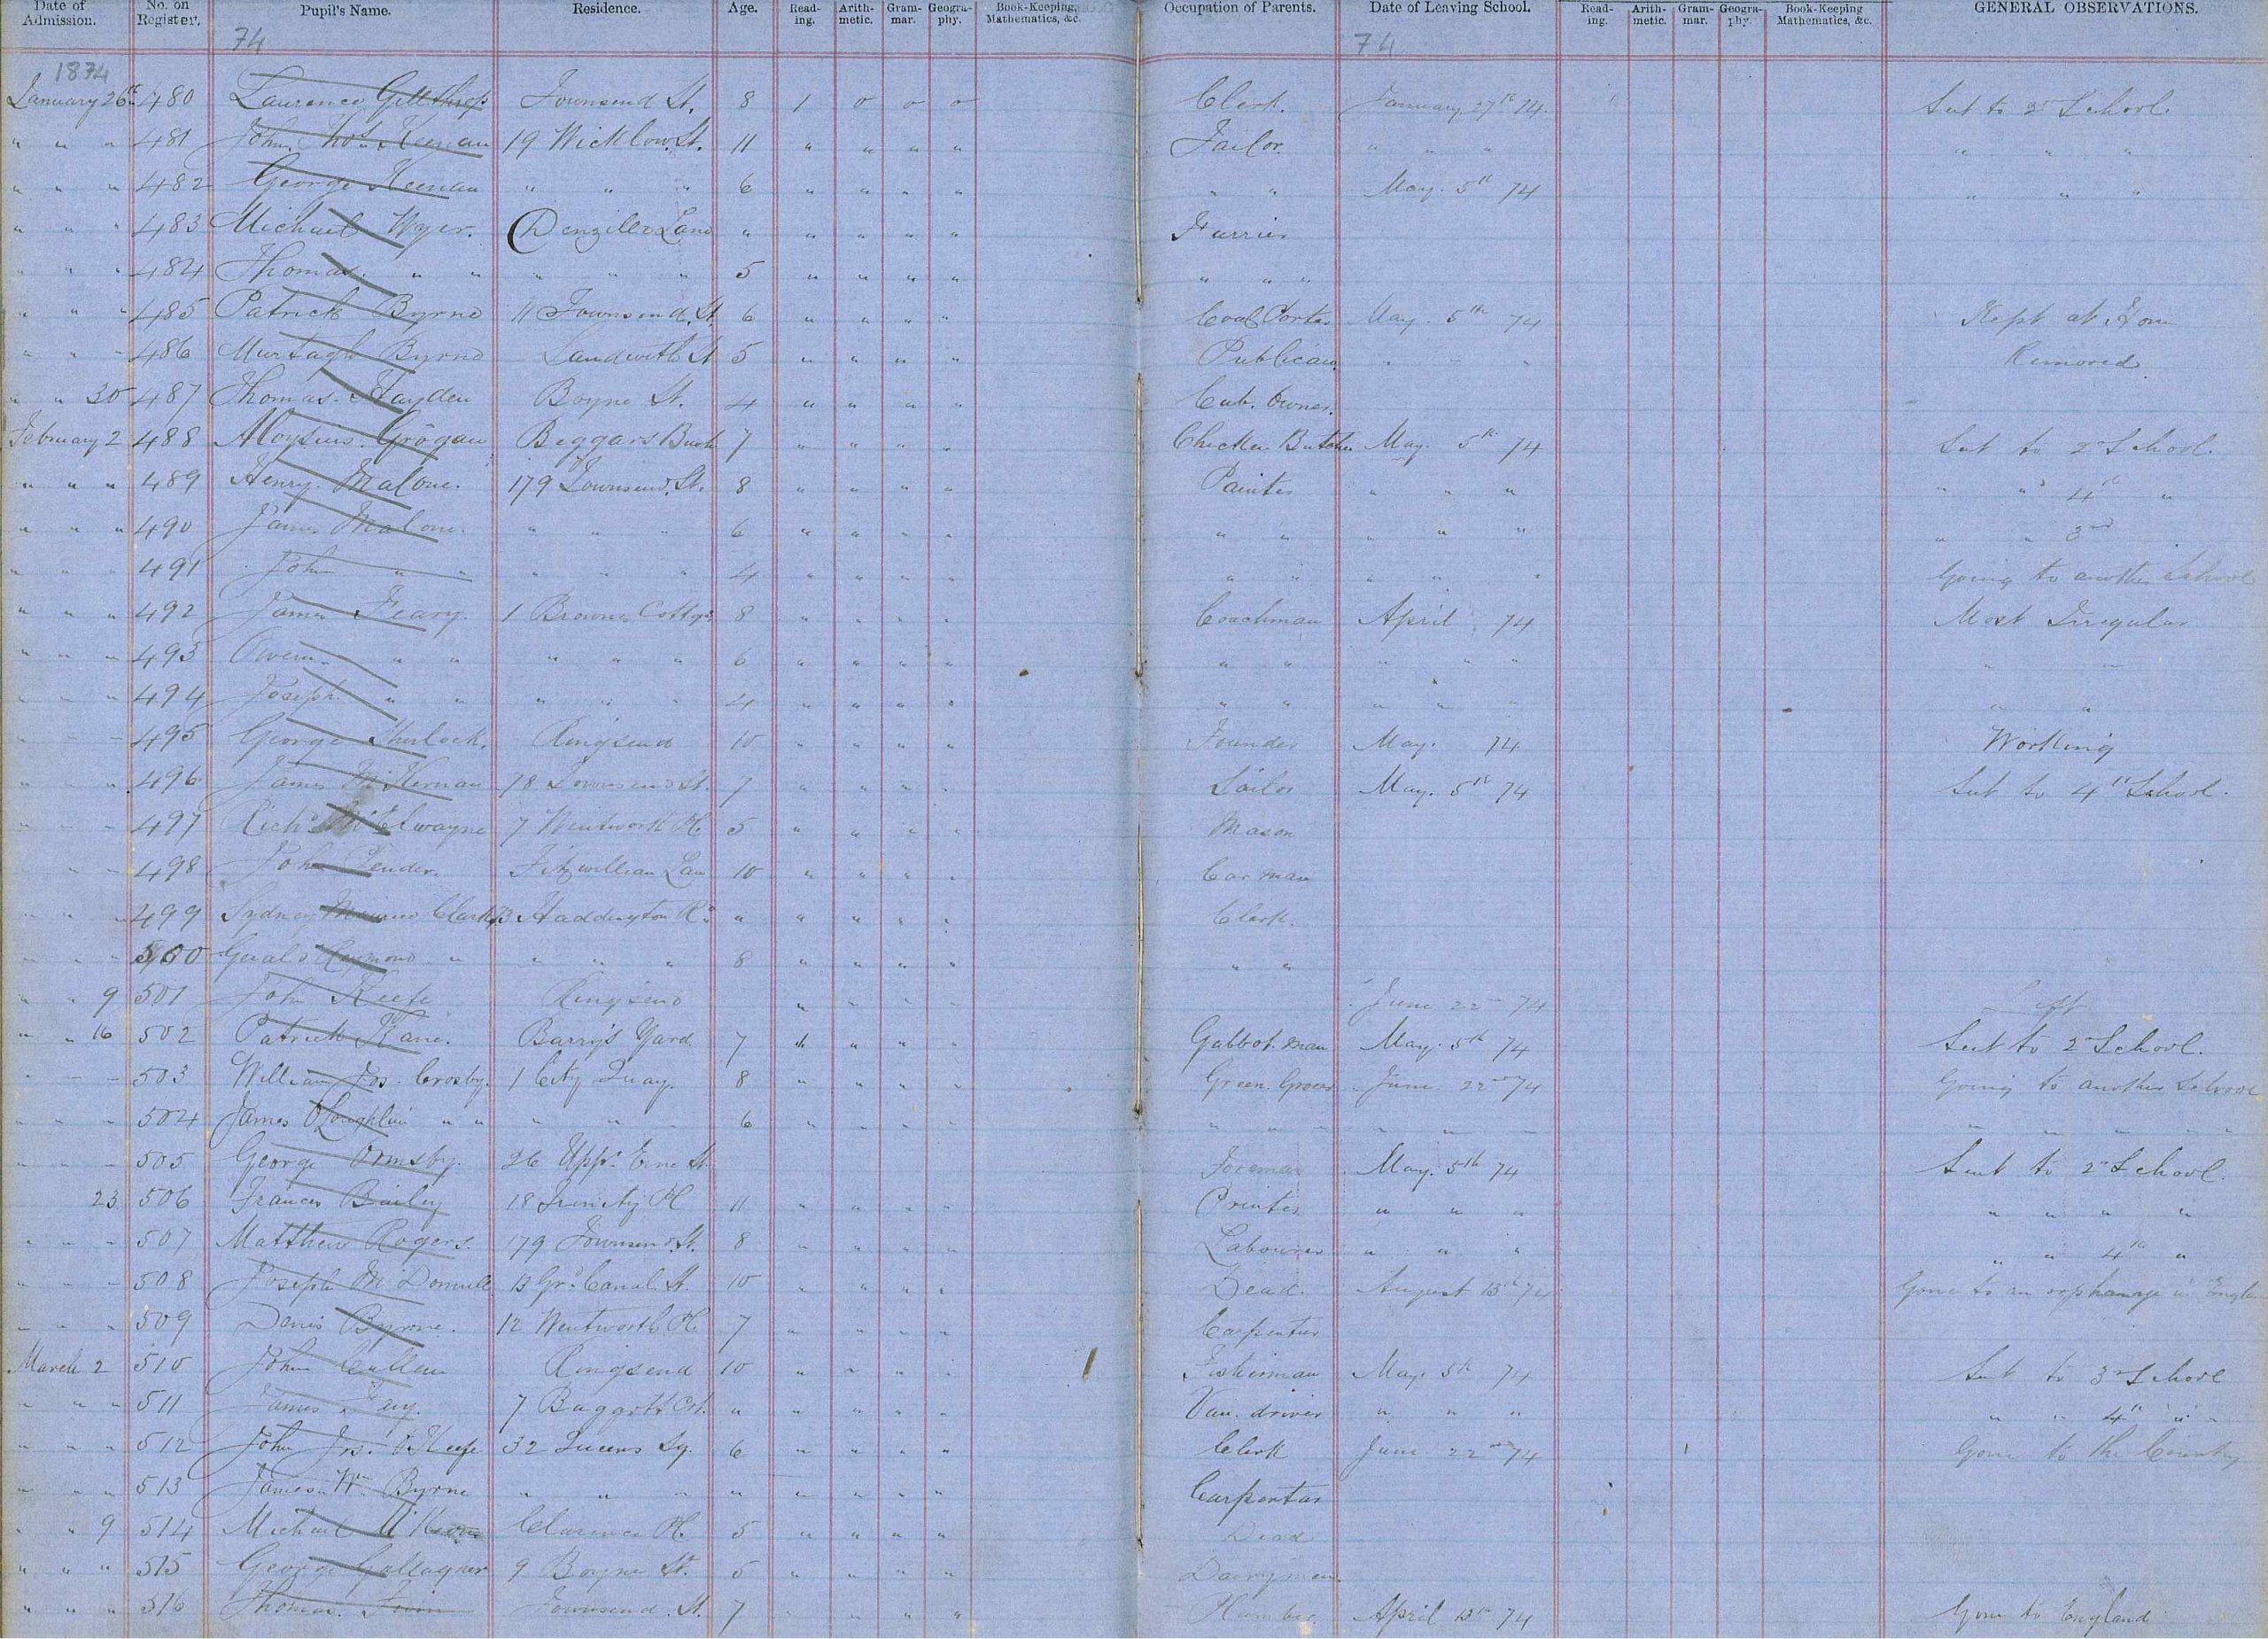 Date of Admission. No. on Register. Pupil's Name. Residence. Age. Read-ing. Arith-metic. Gram-mar. Geogra-phy. Book-Keeping, Mathematics, &c. Occupation of Parents. Date of Leaving School. Read-ing. Arith-metic. Gram-mar. Geogra-phy. Book-Keeping Mathematics, &c. GENERAL OBSERVATIONS.
74 74
1874
January 26th 480 Laurence Townsend St. 8 1 0 0 0 Clerk. January 27th 74. Sent to 2nd School.
" " " 481 John Thos Keenan 19 Wicklow St. 11 " " " " Tailor " " " " " "
" " " 482 George Keenan " " " 6 " " " " " " May. 5th 74 " " "
" " " 483 Michael Wyer. Denziller Lane " " " " " Farrier
" " " 484 Thomas " " " " " 5 " " " " " " "
" " " 485 Patrick Byrne 11 Townsend St. 6 " " " " Coal Porter May 5th 74 Kept at Home
" " " 486 Murtagh Byrne Sandwith St 5 " " " " Publican " " " Removed.
" " 30 487 Thomas Hayden Boyne St. 4 " " " " Cab. Owner.
February 2 488 Aloysius Grogan Beggars Bush 7 " " " " Chicken Butcher May. 5th 74 Sent to 2nd School.
" " " 489 Henry Malone. 179 Townsend St. 8 " " " " Painter " " " " " 4th "
" " " 490 James Malone. " " " 6 " " " " " " " " " " " 3rd
" " " 491 John " " " " " 4 " " " " " " " " " Going to another School
" " " 492 James Feary. 1 Browns Cottgs 8 " " " " Coachman April 74 Most Irregular
" " " 493 Owen " " " " " 6 " " " " " " " " " " "
" " " 494 Joseph " " " " " 4 " " " " " " " " " " "
" " " 495 George Sherlock. Ringsend 10 " " " " Founder May. 74 Working
" " " 496 James McKernan 78 Townsend St. 7 " " " " Sailor May. 5th 74 Sent to 4th School.
" " " 497 Richd McElwayne 7 Wentworth Pl. 5 " " " " Mason
" " " 498 John Pender. Fitzwilliam Lane 10 " " " " Car man
" " " 499 Sydney Maurice Clarke Haddington Rd " " " " " Clerk.
" " " 500 Gerald Raymond " " " " 8 " " " " " "
" " 9 501 John Keefe Ringsend " " " " June 22nd 74 Left
" " 16 502 Patrick Kane. Barry's Yard 7 " " " " Gabbot. man May. 5th 74 Sent to 2nd School.
" " " 503 William Jos. Crosby. 1 City Quay. 8 " " " " Green. Grocer June 22nd 74 Going to another School
" " " 504 James O'Loughlin " " " " " 6 " " " " " " " " " " " " " " "
" " " 505 George Ormsby. 26 Uppr Erne St Foreman May. 5th 74 Sent to 2nd School.
23 506 Francis Bailey 18 Trinity Pl 11 " " " " Printer " " " " " " "
" " " 507 Matthew Rogers. 179 Townsend St. 8 " " " " Labourer " " " " " 4th "
" " " 508 Joseph McDonnell 13 Gr. Canal St. 10 " " " " Dead. August 13th 74 Gone to an orphanage in Engla
" " " 509 Denis Byrne. 12 Wentworth Pl. 7 " " " " Carpenter
March 2 510 John Cullen Ringsend 10 " " " " Fisherman May. 5th 74 Sent to 3rd School
" " " 511 James 7 Baggott Crt. " " " " " Van. driver " " " " " 4th " "
" " " 512 John Jos. O'Keefe 32 Queens Sq. 6 " " " " Clerk June 22nd 74 Gone to the Country
" " " 513 James Wm Byrne " " " " " " " " Carpenter
" " 9 514 Michael Clarence Pl. 5 " " " " Dead
" " " 515 George Gallagher 9 Boyne St. 5 " " " " Dairyman.
" " " 516 Thomas Townsend St. 7 " " " " Plumber April 13th 74 Gone to England